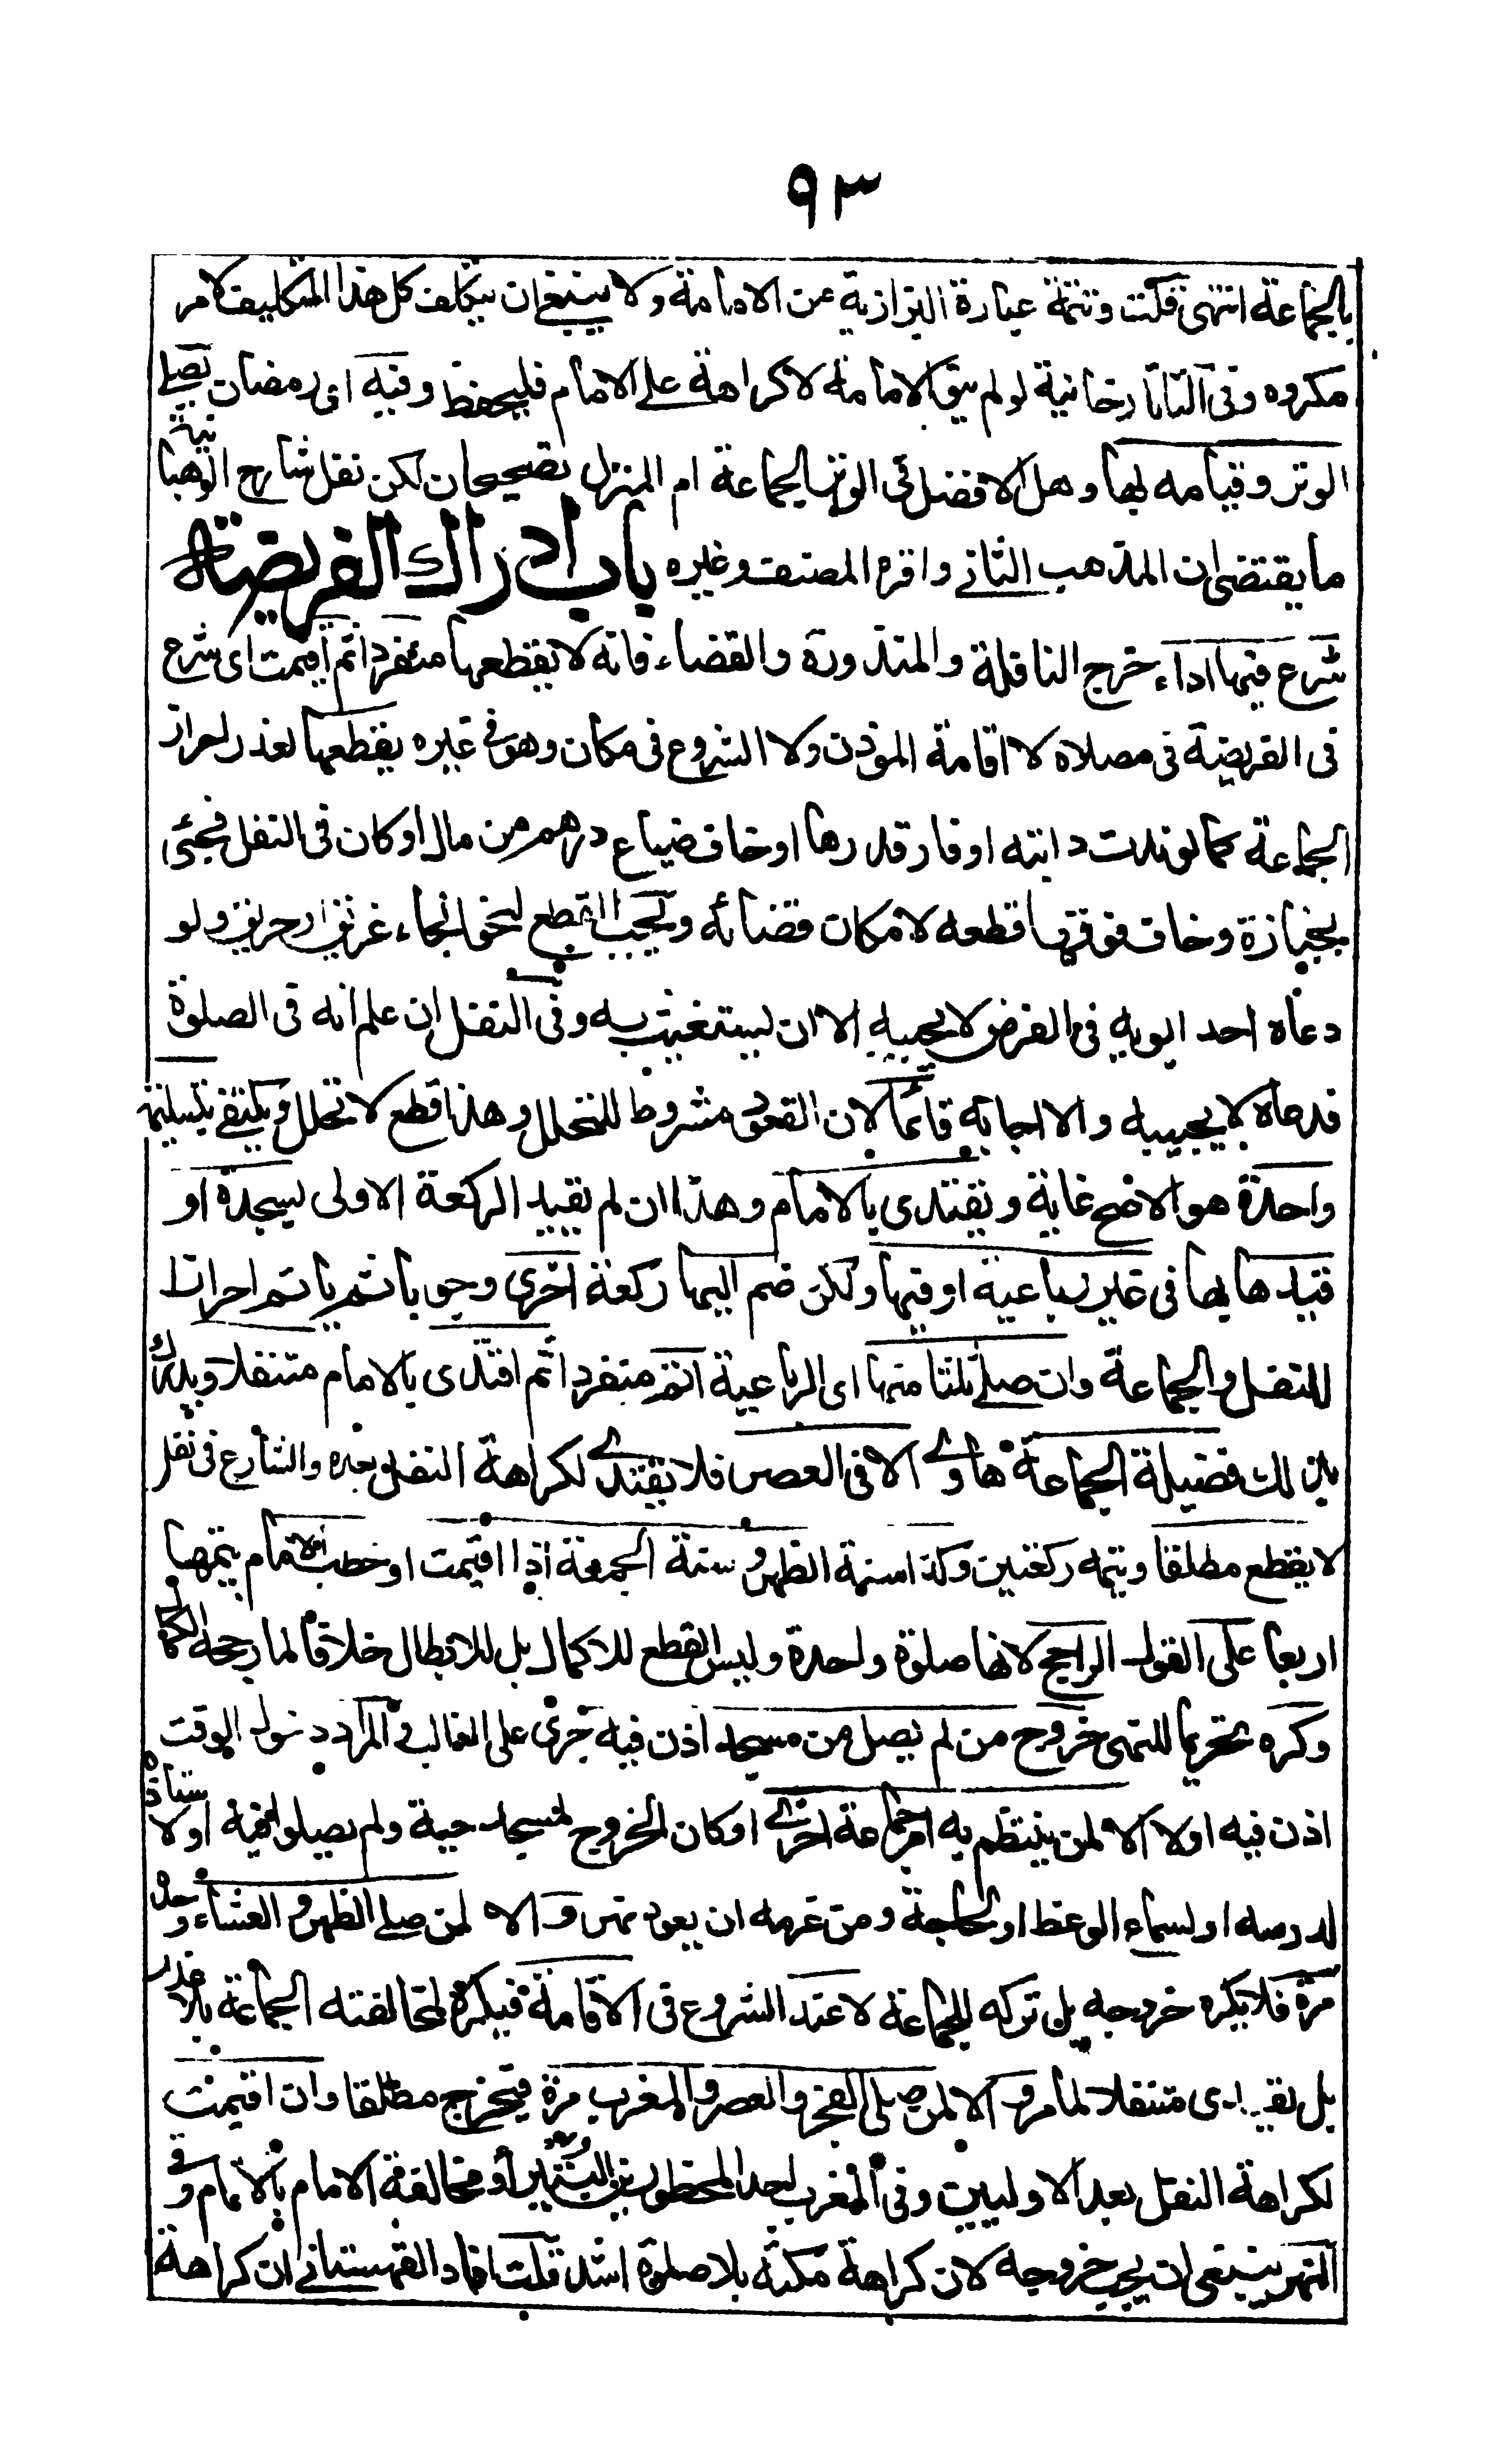 ٩٣
بالجماعة انتهى قلت وتتمة عبارة البزازية من الامامة ولا ينبغي ان يتكلف كل هذا التكليف لامر
مكروه وفى التاتارخانية لو لم ينو الامامة لا كراهة على الامام فليحفظ وفيه اى رمضان يصلى
الوتر وقيامه بها وهل الافضل فى الوتر الجماعة ام المنزل تصحيحان لكن نقل شارح الوهبانية
ما يقتضى ان المذهب الثانى واقره المصنف وغيره باب ادراك الفريضة
شرع فيها اداء خرج النافلة والمنذورة والقضاء فانه لا يقطعها منفردا ثم اقيمت اى شرع
فى الفريضة فى مصلاه لا اقامة الموذن ولا الشروع فى مكان وهو فى غيره يقطعها لعذر احراز
الجماعة كما لو ندت دابته او فار قدرها او خاف ضياع درهم من ماله او كان فى النفل فجئ
بجنازة وخاف فوتها قطعه لامكان قضائه ويجب القطع لنحو انجاء غريق او حريق ولو
دعاه احد ابويه فى الفرض لا يجيبه الا ان يستغيث به وفى النفل ان علم انه فى الصلوة
فدعاه لا يجيبه والا اجابه قائما لان القعود مشروط للتحلل وهذا قطع لا تحلل ويكتفى بتسليمة
واحدة هو الاصح غاية ويقتدى بالامام وهذا ان لم يقيد الركعة الاولى بسجدة او
قيدها بها فى غير رباعية او فيها ولكن ضم اليها ركعة اخرى وجوبا ثم ياتم احرازا
للنفل والجماعة وان صلى ثلثا منها اى الرباعية اتم منفردا ثم اقتدى بالامام متنفلا ويدرك
بذلك فضيلة الجماعة حاوى الا فى العصر فلا يقتدى لكراهة النفل بعده والشارع فى نفل
لا يقطع مطلقا ويتمه ركعتين وكذا سنة الظهر و سنة الجمعة اذا اقيمت او خطب الامام يتمها
اربعا على القول الراجح لانها صلوة واحدة وليس القطع للاكمال بل للابطال خلافا لما رجحه الكمال
وكره تحريما للنهى خروج من لم يصل من مسجد اذن فيه جرى على الغالب والمراد دخول الوقت
اذن فيه اولا الا لمن ينتظم به امر جماعة اخرى او كان الخروج لمسجد حيه ولم يصلوا فيه او لاستاذه
لدرسه او لسماع الوعظ او لحاجة ومن عزمه ان يعود نهر و الا لمن صلى الظهر و العشاء وحده
مرة فلا يكره خروجه بل تركه للجماعة الا عند الشروع فى الاقامة فيكره لمخالفته الجماعة بلا عذر
بل يقتدى متنفلا لما مر و الا لمن صلى الفجر والعصر والمغرب مرة فيخرج مطلقا وان اقيمت
لكراهة النفل بعد الاوليين وفى المغرب احد المحظورين البتيراء او مخالفة الامام بالاتمام وفى
النهر ينبغى ان يجب خروجه لان كراهة مكثه بلا صلوة اشد قلت افاد القهستانى ان كراهة